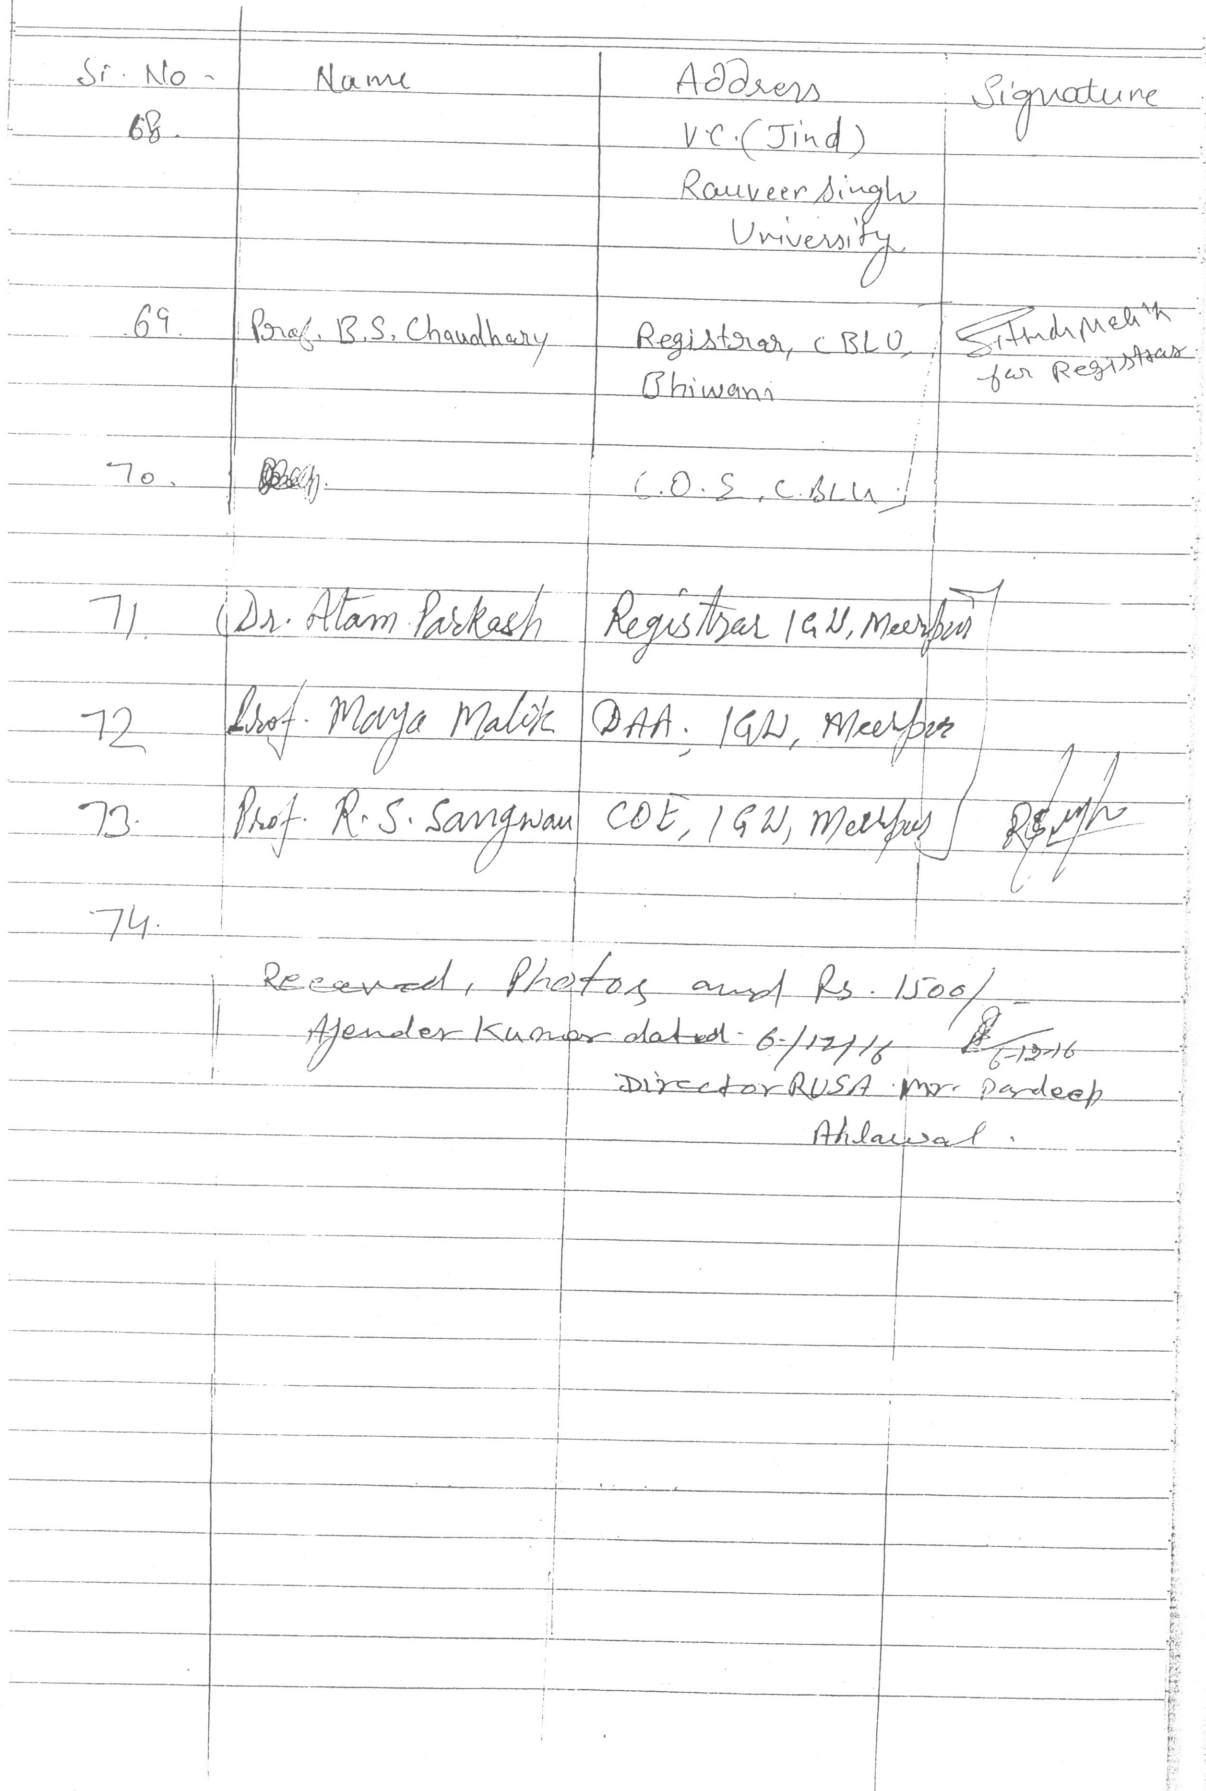 Sr. No - Name Address Signature
68. V.C. (Jind)
Rauveer Singh
University
69. Prof. B.S. Chaudhary Registrar, CBLU,
Bhiwani
for Registrar
70. C.O.E, C.BLU
71. Dr. Atam Parkash Registrar IGU, Meerpur
72 Prof. Maya Malik DAA, IGU, Meerpur
73. Prof. R.S. Sangwan COE, IGU, Meerpur
74.
Received, Photos and Rs. 1500/-
Ajender Kumar dated - 6/12/16 6-12-16
Director RUSA Mr. Pardeep
Ahlawal.